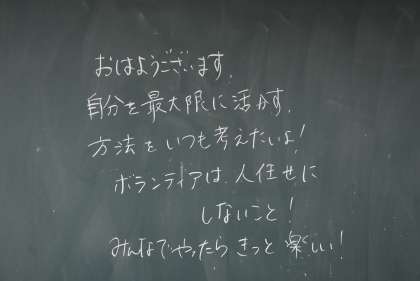 おはようございます。
自分を最大限に活かす、
方法をいつも考えたいよ!
ボランティアは、人任せに
しないこと!
みんなでやったらきっと楽しい!